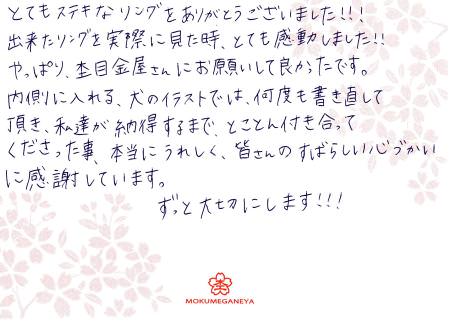 とてもステキなリングをありがとうございました!!!
出来たリングを実際に見た時、とても感動しました!!
やっぱり、杢目金屋さんにお願いして良かったです。
内側に入れる、犬のイラストでは、何度も書き直して
頂き、私達が納得するまで、とことん付き合って
くださった事、本当にうれしく、皆さんのすばらしい心づかい
に感謝しています。
ずっと大切にします!!!
杢
MOKUMEGANEYA